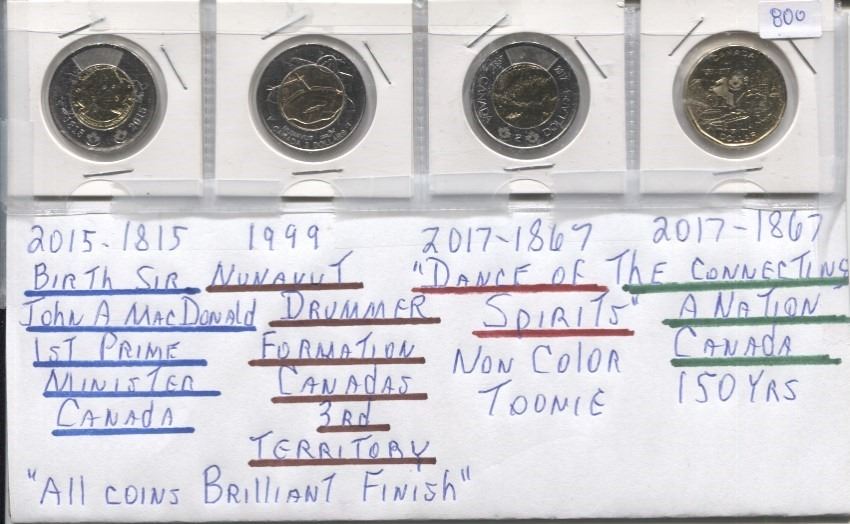 800
2015-1815
BIRTH SIR
JOHN A MACDONALD
1ST PRIME
MINISTER
CANADA
1999
NUNAVUT
DRUMMER
FORMATION
CANADAS
3RD
TERRITORY
2017-1867
"DANCE OF THE
SPIRITS"
NON COLOR
TOONIE
2017-1867
CONNECTING
A NATION
CANADA
150 YRS
"ALL COINS BRILLIANT FINISH"